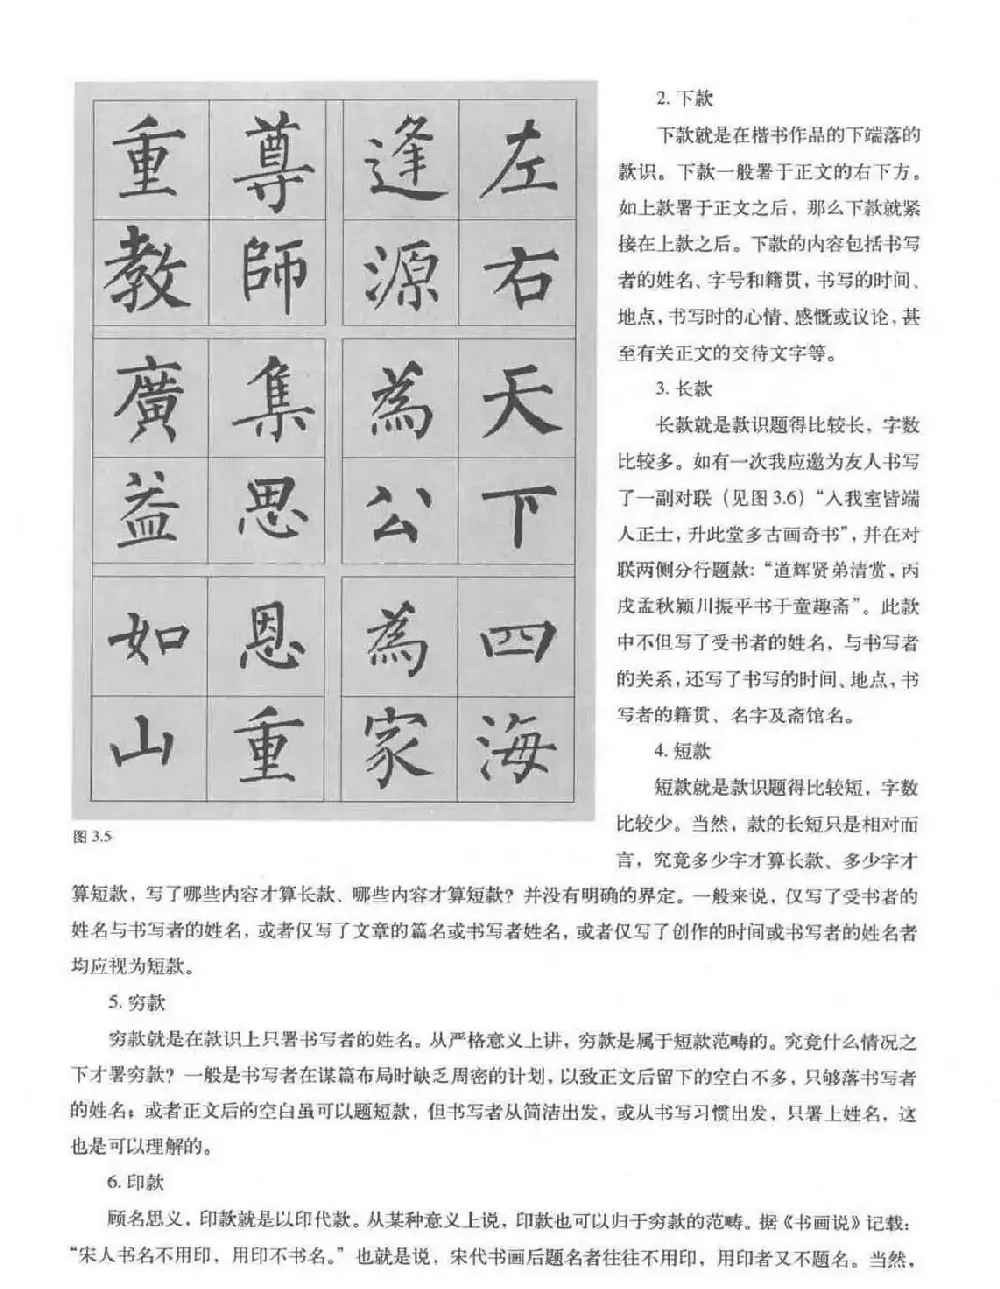 重 尊 逢 左
教 師 源 右
廣 集 為 天
益 思 公 下
如 恩 為 四
山 重 家 海
图 3.5
2. 下款
下款就是在楷书作品的下端落的
款识。下款一般署于正文的右下方。
如上款署于正文之后，那么下款就紧
接在上款之后。下款的内容包括书写
者的姓名、字号和籍贯，书写的时间、
地点，书写时的心情、感慨或议论，甚
至有关正文的交待文字等。
3. 长款
长款就是款识题得比较长，字数
比较多。如有一次我应邀为友人书写
了一副对联（见图 3.6）“入我室皆端
人正士，升此堂多古画奇书”，并在对
联两侧分行题款：“道辉贤弟清赏，丙
戌孟秋颍川振平书于童趣斋”。此款
中不但写了受书者的姓名，与书写者
的关系，还写了书写的时间、地点，书
写者的籍贯、名字及斋馆名。
4. 短款
短款就是款识题得比较短，字数
比较少。当然，款的长短只是相对而
言，究竟多少字才算长款、多少字才
算短款，写了哪些内容才算长款、哪些内容才算短款？并没有明确的界定。一般来说，仅写了受书者的
姓名与书写者的姓名，或者仅写了文章的篇名或书写者姓名，或者仅写了创作的时间或书写者的姓名者
均应视为短款。
5. 穷款
穷款就是在款识上只署书写者的姓名。从严格意义上讲，穷款是属于短款范畴的。究竟什么情况之
下才署穷款？一般是书写者在谋篇布局时缺乏周密的计划，以致正文后留下的空白不多，只够落书写者
的姓名；或者正文后的空白虽可以题短款，但书写者从简洁出发，或从书写习惯出发，只署上姓名，这
也是可以理解的。
6. 印款
顾名思义，印款就是以印代款。从某种意义上说，印款也可以归于穷款的范畴。据《书画说》记载：
“宋人书名不用印，用印不书名。”也就是说，宋代书画后题名者往往不用印，用印者又不题名。当然，